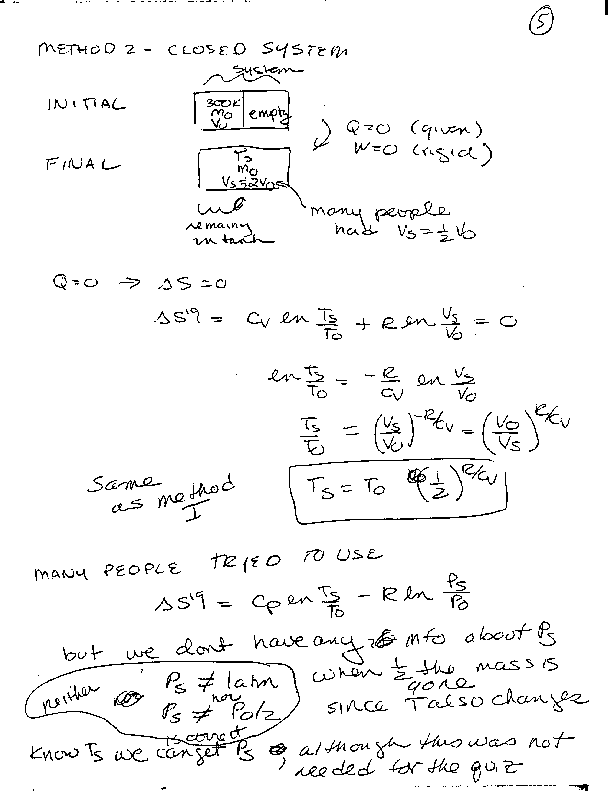 5
METHOD 2 - CLOSED SYSTEM
system
INITIAL
300K
m0
V0
empty
Q=0 (given)
W=0 (rigid)
FINAL
Ts
m0
Vs=2V0
remaining
in tank
many people
had Vs=½V0
Q=0 → ΔS=0
ΔS^ig = Cv ln Ts/T0 + R ln Vs/V0 = 0
ln Ts/T0 = -R/Cv ln Vs/V0
Ts/T0 = (Vs/V0)^-R/Cv = (V0/Vs)^R/Cv
Same
as method
I
Ts = T0 (1/2)^R/Cv
MANY PEOPLE TRIED TO USE
ΔS^ig = Cp ln Ts/T0 - R ln Ps/P0
but we dont have any info about Ps
when ½ the mass is
gone
since T also changes
neither
Ps ≠ 1atm
nor
Ps ≠ P0/2
is correct
Know Ts we can get Ps, although this was not
needed for the quiz